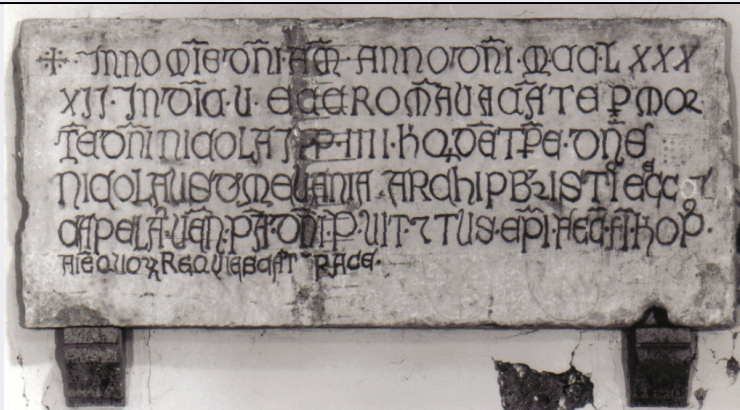 ✠ · INNOMIE DNI · AM · ANNO DNI · M · CC · L XXX
XII · INDIC · V · ECCE ROMA VACATE P MOR
TE DNI NICOLAI PP · IIII · HO DE TPE · DNS
NICOLAUS D MEVANIA ARCHIPBR ISTI ECC
CAPELA · VEN · PA · DNI · P · VIT · 7 TUS · EPI · FEC · FI HOP ·
AIE QUOR REQUIESCAT PACE ·